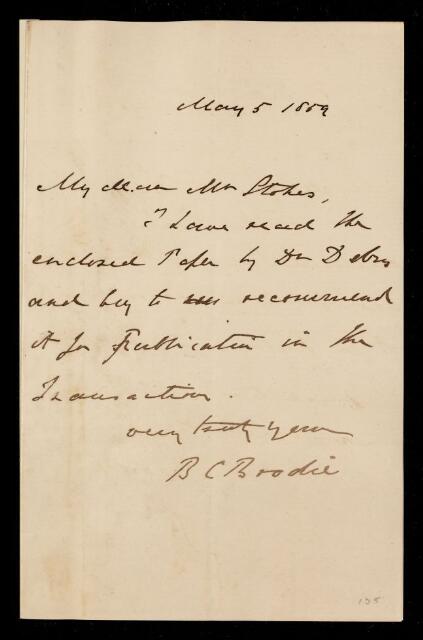 May 5 1859
My dear Mr Stokes,
I have read the
enclosed Paper by Dr Debus
and beg to recommend
it for Publication in the
Transaction.
very truly yours
B C Brodie
135